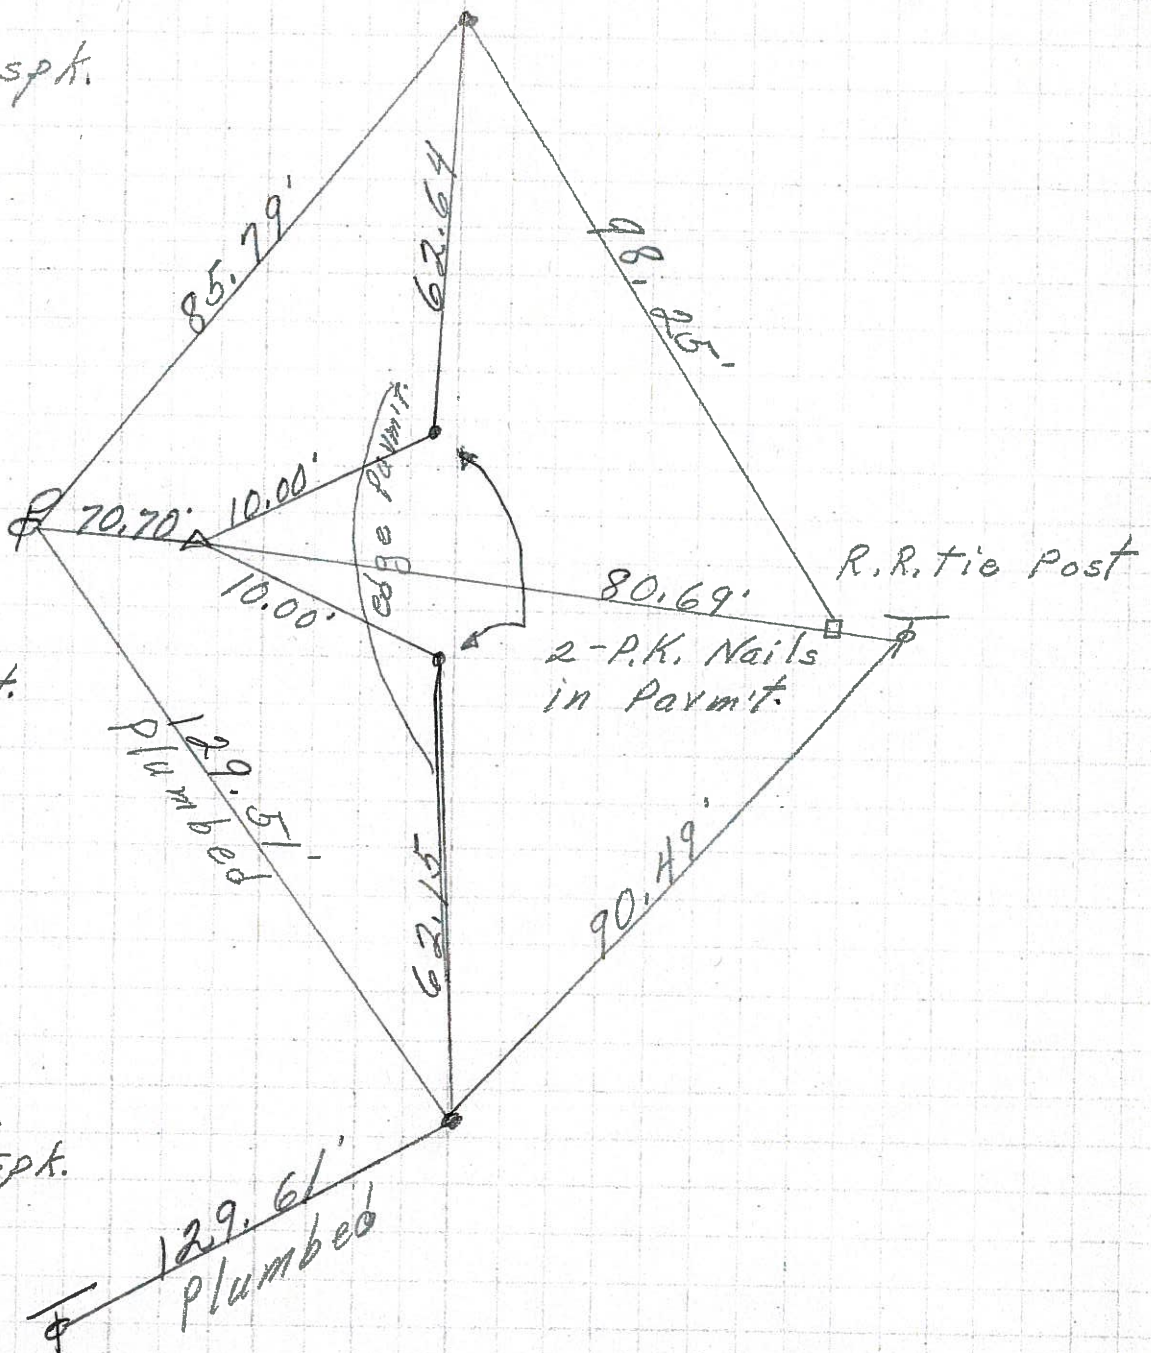 spk.
85.79'
62.64
98.25'
edge Pavm't.
70.70'
10.00'
10.00'
80.69'
R.R. tie Post
2-P.K. Nails
in Pavm't.
t.
129.51'
Plumbed
62.15
90.49'
spk.
129.61'
Plumbed